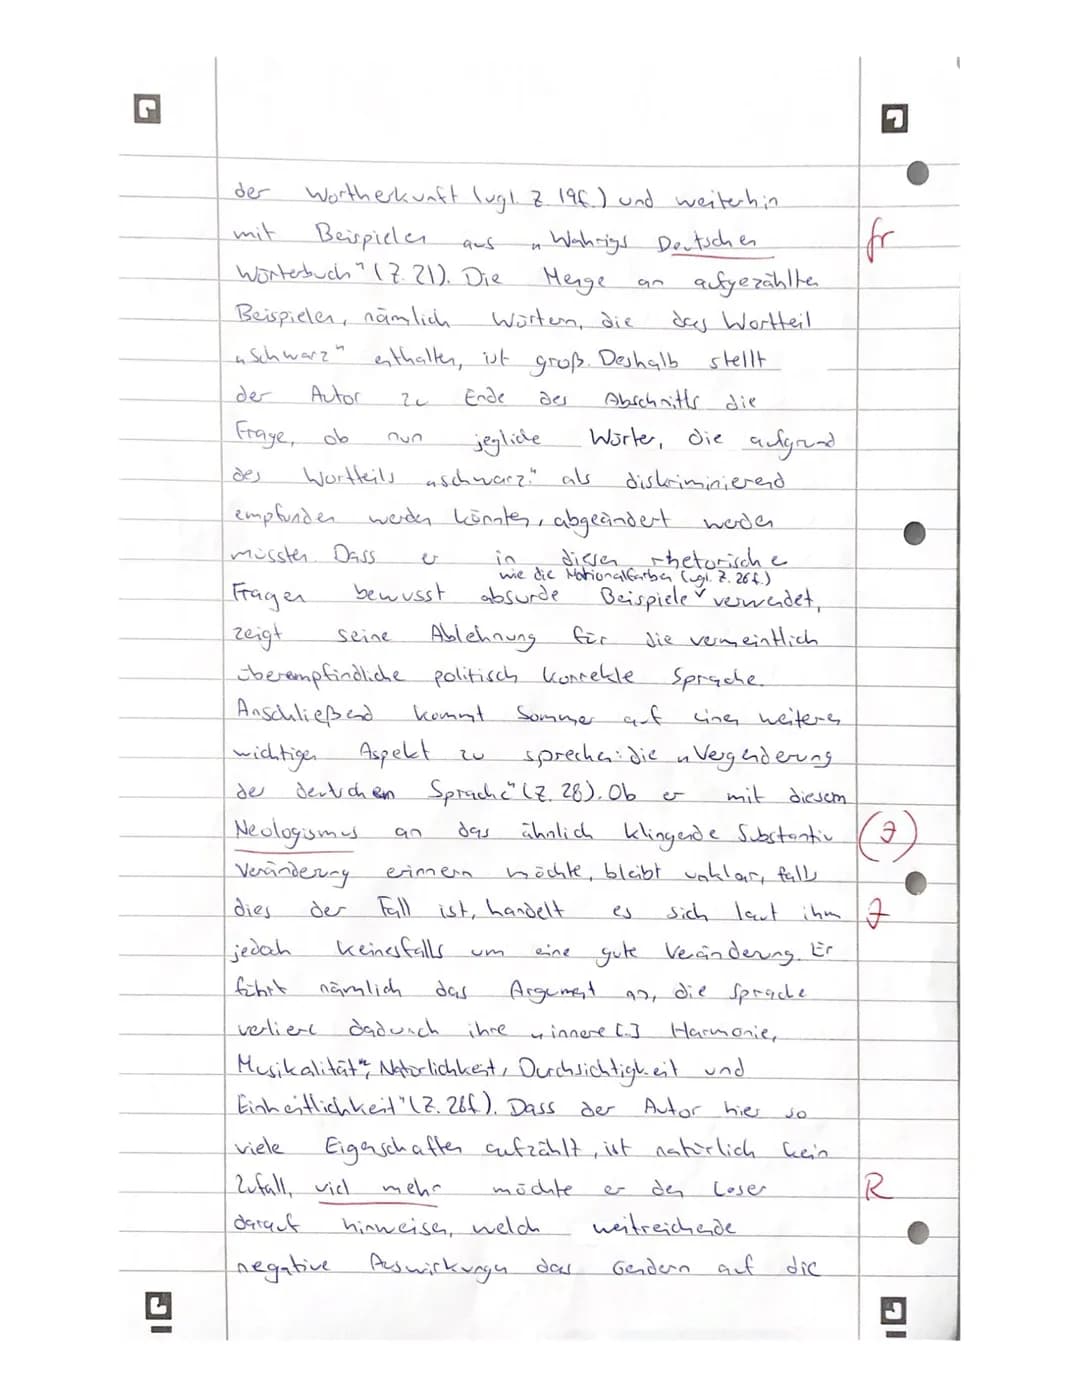 der Wortherkunft (vgl. Z. 19f.) und weiterhin
mit Beispielen aus „Wahrigs Deutschen fr
Wörterbuch" (Z. 21). Die Menge an aufgezählten
Beispielen, nämlich Wörtern, die das Wortteil
„Schwarz" enthalten, ist groß. Deshalb stellt
der Autor zu Ende des Abschnitts die
Frage, ob nun jegliche Wörter, die aufgrund
des Wortteils „schwarz" als diskriminierend
empfunden werden könnten, abgeändert werden
müssten. Dass er in diesen rhetorische
wie die Nationalfarben (vgl. Z. 26f.)
Fragen bewusst absurde Beispiele verwendet,
zeigt seine Ablehnung für die vermeintlich
überempfindliche politisch korrekte Sprache.
Anschließend kommt Sommer auf einen weiteren
wichtigen Aspekt zu sprechen: die „Vergenderung
der deutschen Sprache" (Z. 28). Ob er mit diesem
Neologismus an das ähnlich klingende Substantiv
Veränderung erinnern möchte, bleibt unklar, falls
dies der Fall ist, handelt es sich laut ihm
jedoch keinesfalls um eine gute Veränderung. Er
führt nämlich das Argument an, die Sprache
verliere dadurch ihre „innere [.] Harmonie,
Musikalität", Natürlichkeit, Durchsichtigkeit und
Einheitlichkeit" (Z. 28f.). Dass der Autor hier so
viele Eigenschaften aufzählt, ist natürlich kein
Zufall, viel mehr möchte er den Leser R
darauf hinweisen, welch weitreichende
negative Auswirkungen das Gendern auf die